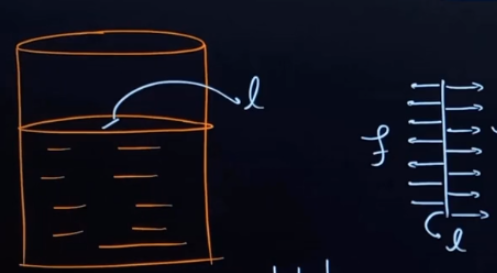 l
f
l